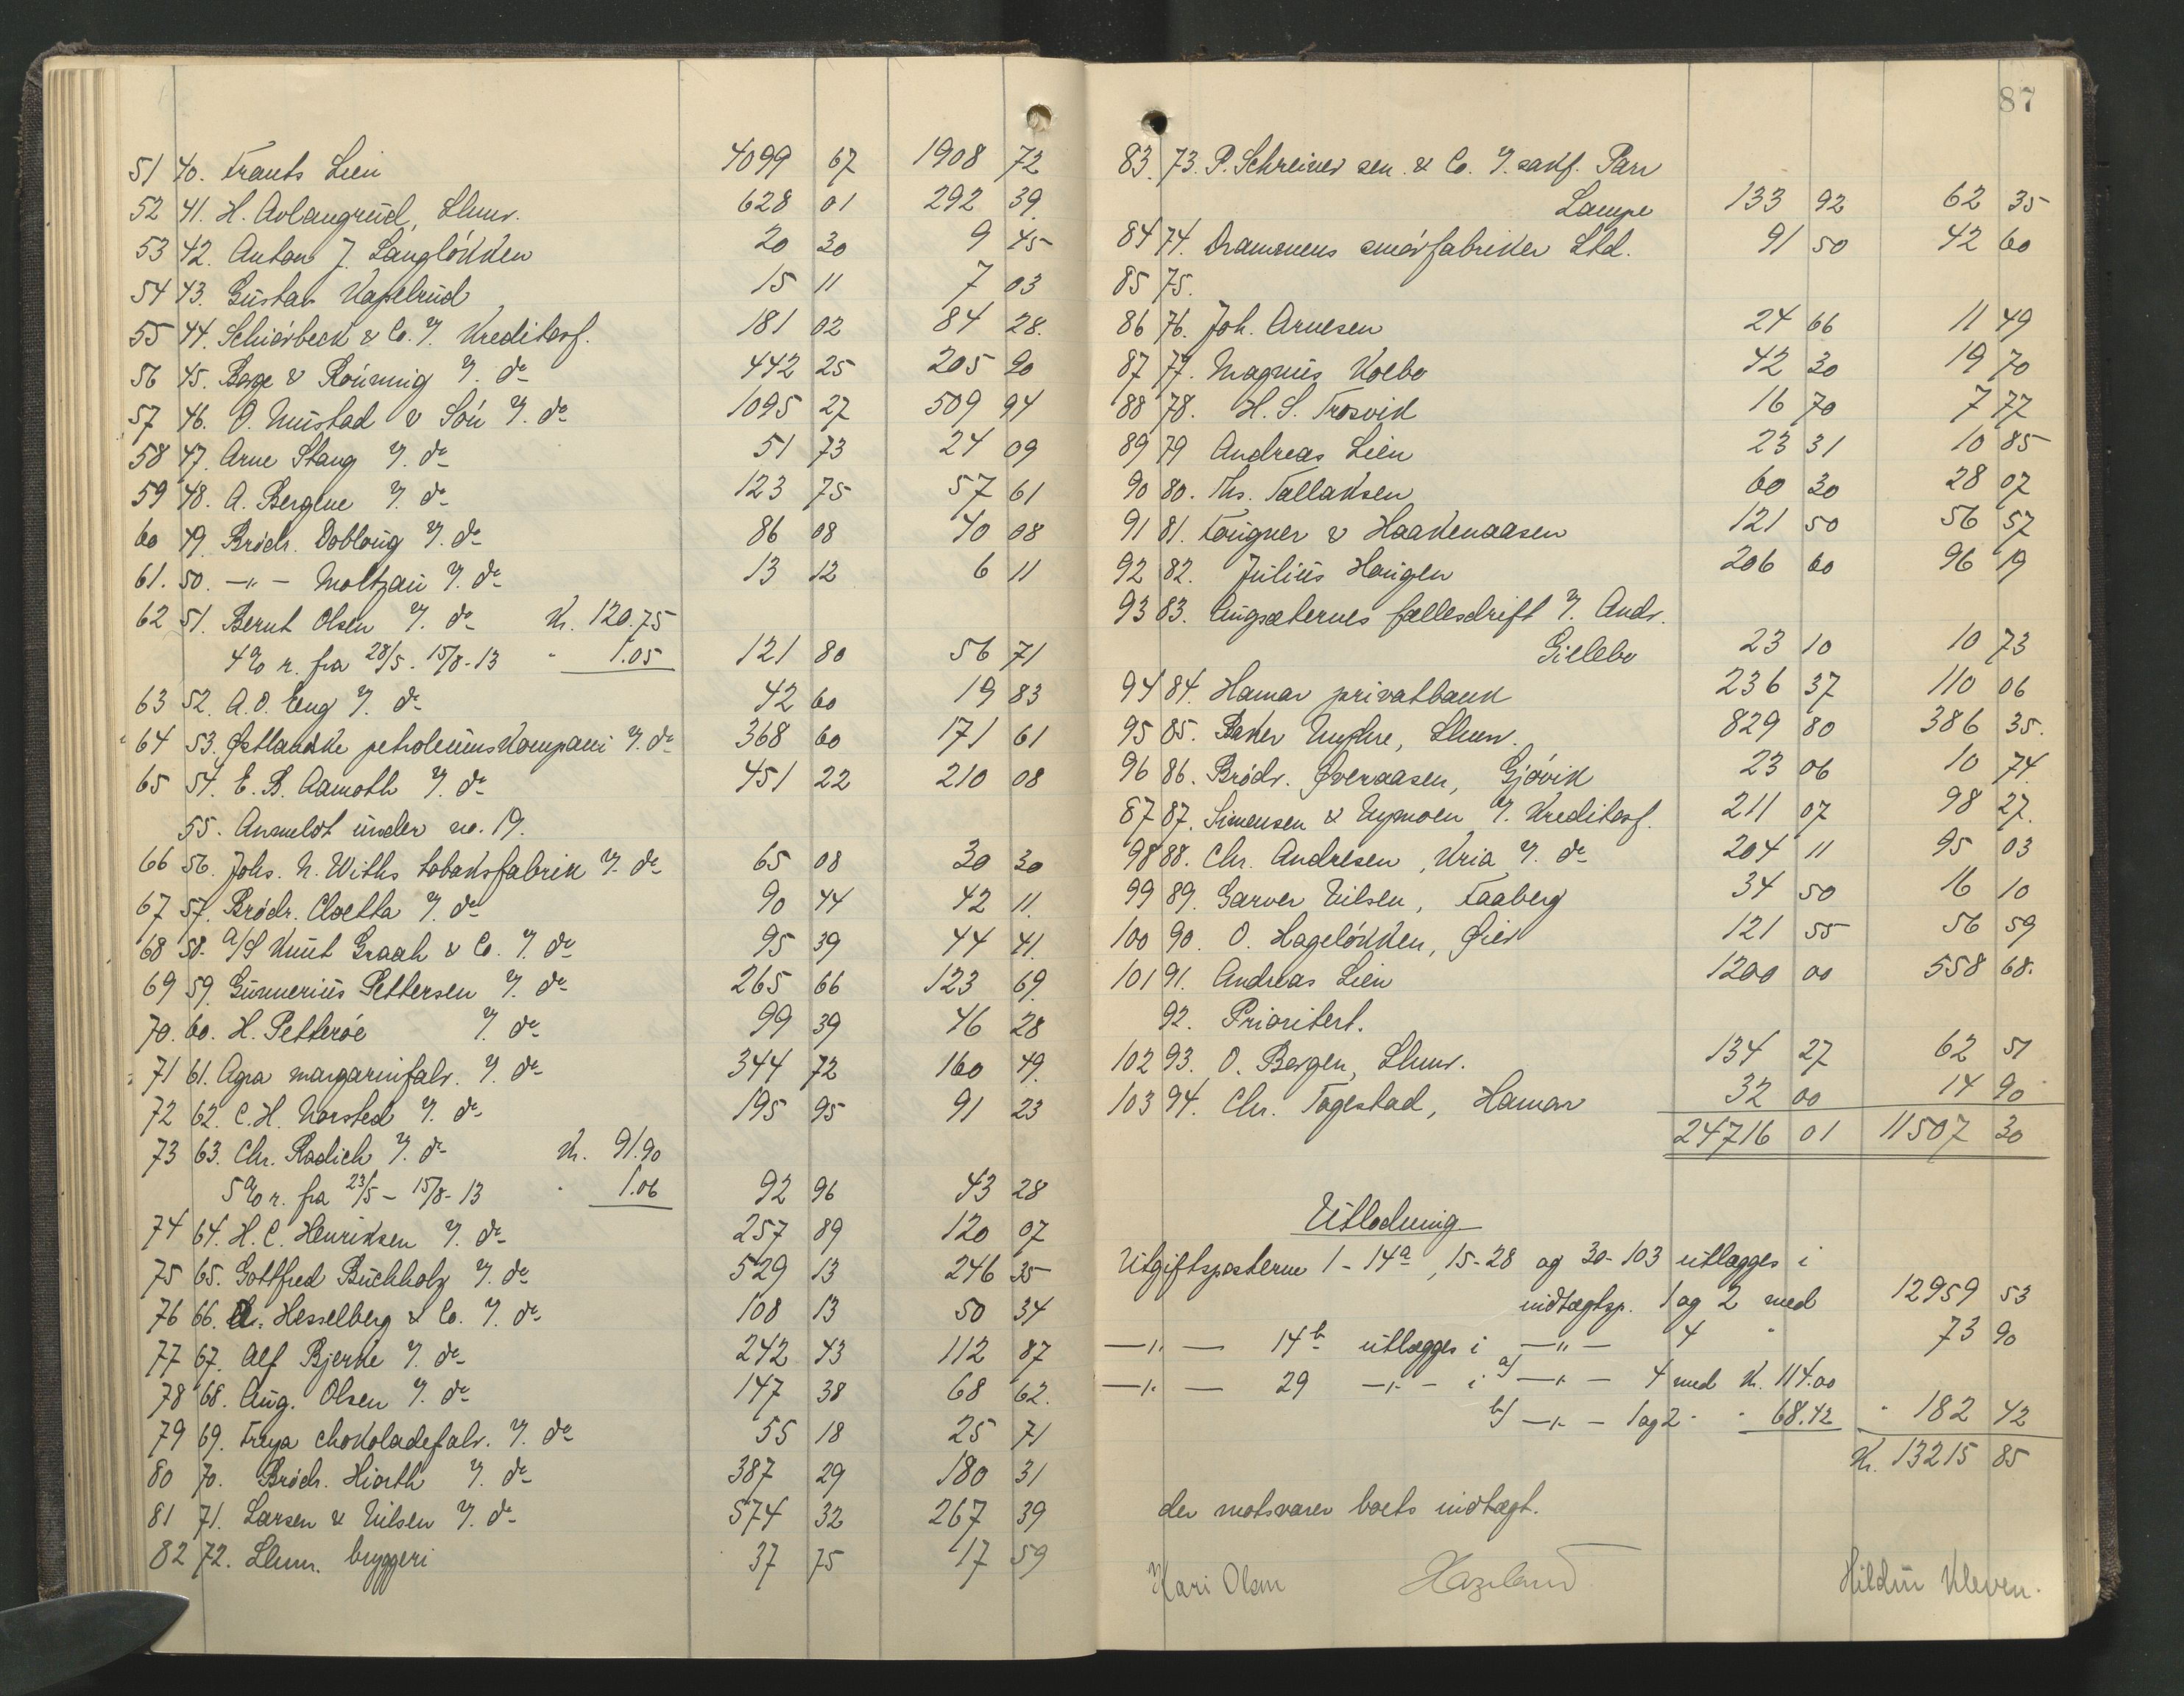 51 40. Frants Lien 4099 67 1908 72
52 41. H. Avlangrud, Lhmr. 628 01 292 39.
53 42. Anton J. Langløkken 20 30 9 45
54 43. Gustav Kapelrud 15 11 7 03
55 44. Schiørbeck & Co. v/. Kreditorf. 181 02 84 28.
56 45. Borge & Rønning v/. do 442 25 205 90
57 46. O. Mustad & Søn v/. do 1095 27 509 94
58 47. Arne Stang v/. do 51 73 24 09
59 48. A. Bergene v/. do 123 75 57 61
60 49. Brødr. Dobloug v/. do 86 08 40 08
61. 50. —"— Moltzau v/. do 13 12 6 11
62 51. Bernt Olsen v/. do Kr. 120.75
4% r. fra 28/5 - 15/8-13 " 1.05 121 80 56 71
63 52. A. O. Eng v/. do 42 60 19 83
64 53. Østlandske petroleumskompani v/. do 368 60 171 61
65 54. E. B. Aamoth v/. do 451 22 210 08
55. Anmeldt under no. 19.
66 56. Johs. N. Withs tobaksfabrik v/. do 65 08 30 30
67 57. Brødr. Cloetta v/. do 90 44 42 11.
68 58. A/S Knut Graah & Co. v/. do 95 39 44 41.
69 59. Gunnerius Pettersen v/. do 265 66 123 69.
70. 60. H. Petterøe v/. do 99 39 46 28
71 61. Agra margarinfabr. v/. do 344 72 160 49.
72 62. C. H. Norsted v/. do 195 95 91 23
73 63. Chr. Radich v/. do Kr. 91.90
5% r. fra 23/5 - 15/8-13 " 1.06 92 96 43 28
74 64. H. C. Henriksen v/. do 257 89 120 07
75 65. Gottfred Buchholz v/. do 529 13 246 35
76 66. Hesselberg & Co. v/. do 108 13 50 34
77 67. Alf Bjerke v/. do 242 43 112 87
78 68. Aug. Olsen v/. do 147 38 68 62.
79 69. Freya chokoladefabr. v/. do 55 18 25 71
80 70. Brødr. Hiorth v/. do 387 29 180 31
81 71. Larsen & Nilsen v/. do 574 32 267 39
82 72. Lhmr. bryggeri 37 75 17 59
87
83. 73. P. Schreiner sen. & Co. v/. sakf. Parr
Lampe 133 92 62 35
84 74. Drammens smørfabriker Ltd. 91 50 42 60
85 75.
86 76. Joh. Arnesen 24 66 11 49
87 77. Magnus Kolbo 42 30 19 70
88 78. H. S. Trosvik 16 70 7 77
89 79 Andreas Lien 23 31 10 85
90 80. Ths. Tallaksen 60 30 28 07
91 81. Fougner & Haakenaasen 121 50 56 57
92 82. Julius Haugen 206 60 96 19
93 83. Augsæternes fællesdrift v/. Andr.
Gillebo 23 10 10 73
94 84. Hamar privatbank 236 37 110 06
95 85. Baker Nyhre, Lhmr. 829 80 386 35.
96 86. Brødr. Øveraasen, Gjøvik 23 06 10 74.
87 87. Simensen & Nymoen v/. Kreditorf. 211 07 98 27.
98 88. Chr. Andresen, Kria v/. do 204 11 95 03
99 89. Garver Nilsen, Faaberg 34 50 16 10
100 90. O. Hageløkken, Øier 121 55 56 59
101 91. Andreas Lien 1200 00 558 68.
92. Prioritert.
102 93. O. Bergen, Lhmr. 134 27 62 51
103 94. Chr. Togestad, Hamar 32 00 14 90
24716 01 11507 30
Utlodning
Utgiftsposterne 1 - 14a, 15-28 og 30-103 utlægges i
indtægtsp. 1 og 2 med 12959 53
—"— 14b utlægges i —"— 4 " 73 90
—"— 29 —"— i a) —"— 4 med Kr. 114.00
b) —"— 1 og 2 " " 68.42 " 182 42
Kr. 13215 85
der motsvarer boets indtægt.
Kari Olsen Hazeland Hildur Kleven.